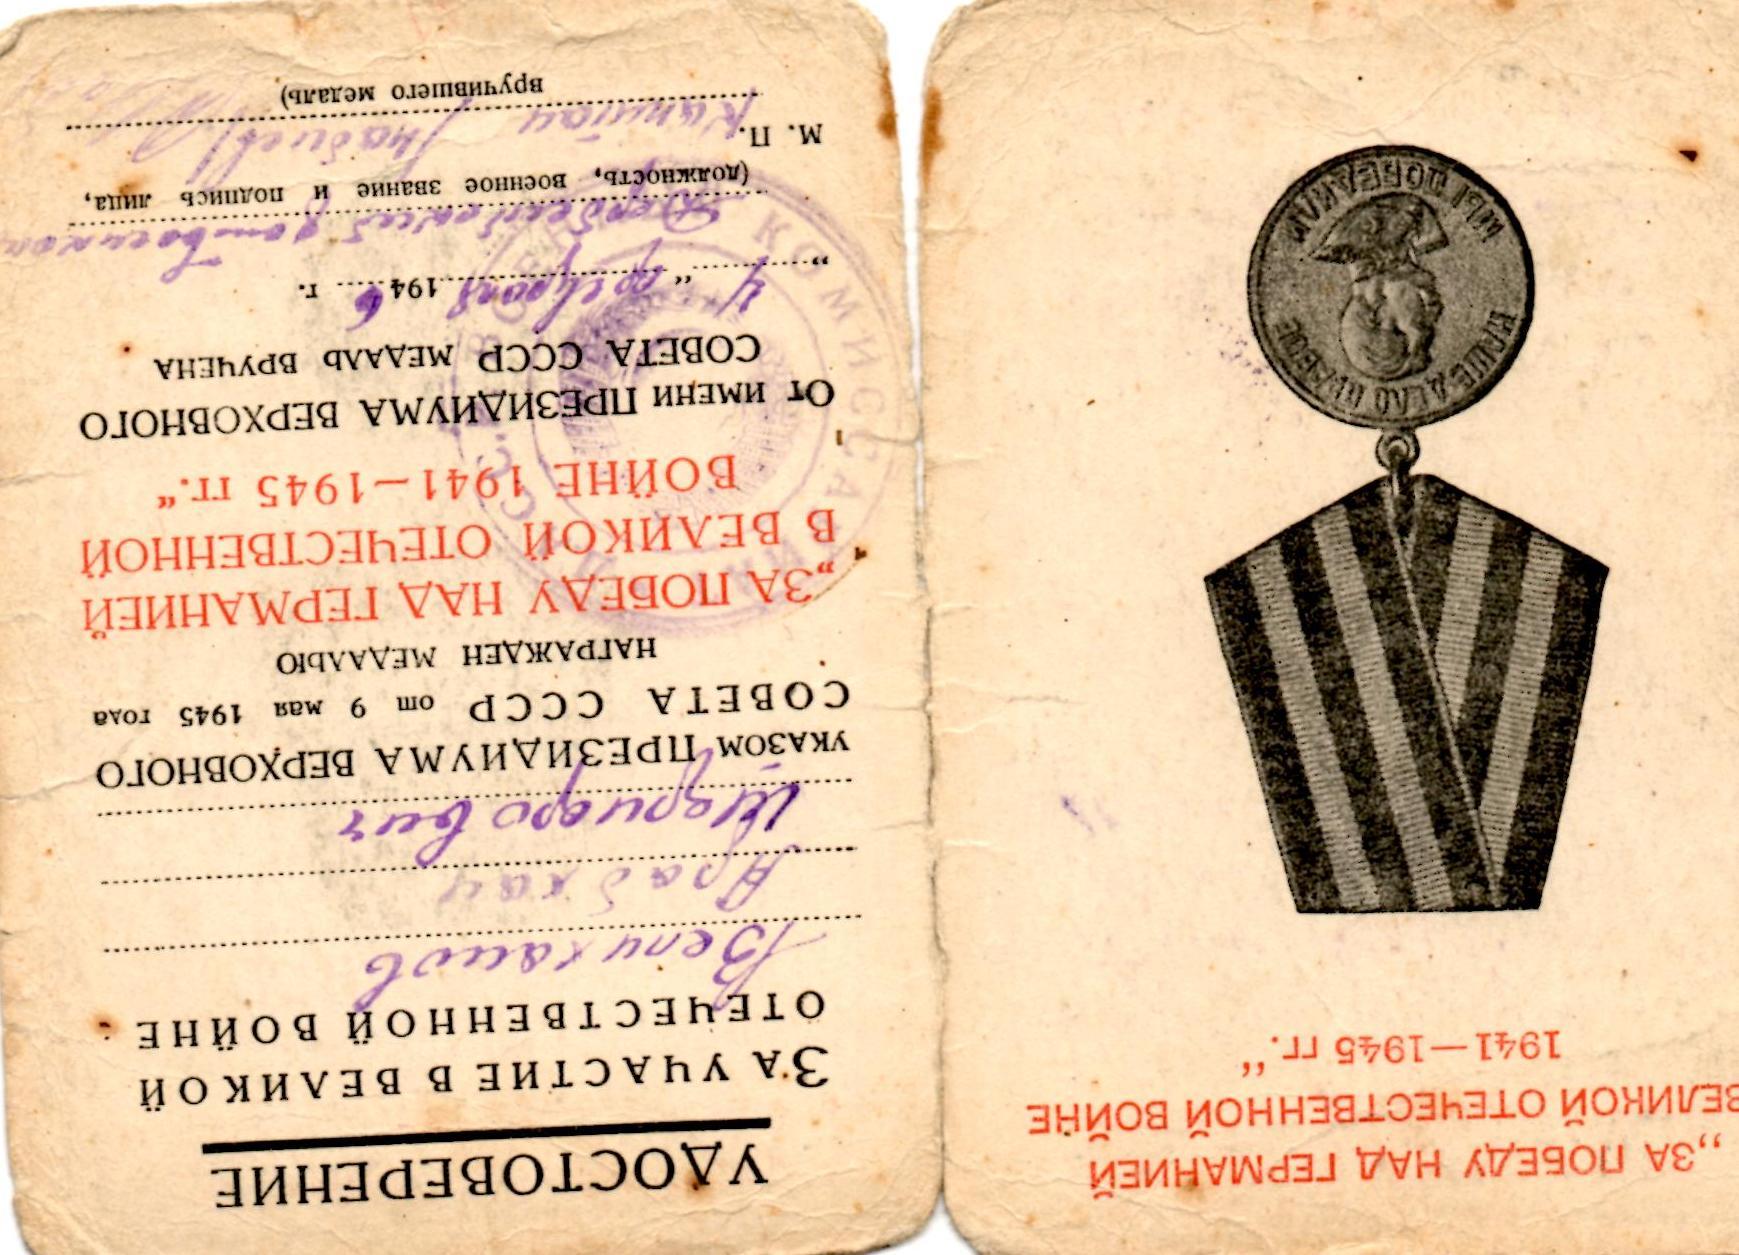 „ЗА ПОБЕДУ НАД ГЕРМАНИЕЙ
ВЕЛИКОЙ ОТЕЧЕСТВЕННОЙ ВОЙНЕ
1941—1945 гг.“
НАШЕ ДЕЛО ПРАВОЕ
МЫ ПОБЕДИЛИ
УДОСТОВЕРЕНИЕ
ЗА УЧАСТИЕ В ВЕЛИКОЙ
ОТЕЧЕСТВЕННОЙ ВОЙНЕ
Велиханов
Арабхан
Шариф ович
УКАЗОМ ПРЕЗИДИУМА ВЕРХОВНОГО
СОВЕТА СССР от 9 мая 1945 года
НАГРАЖДЕН МЕДАЛЬЮ
„ЗА ПОБЕДУ НАД ГЕРМАНИЕЙ
В ВЕЛИКОЙ ОТЕЧЕСТВЕННОЙ
ВОЙНЕ 1941—1945 гг.“
От ИМЕНИ ПРЕЗИДИУМА ВЕРХОВНОГО
СОВЕТА СССР МЕДАЛЬ ВРУЧЕНА
„4“ февраля 1946 г.
Дербентский
(должность, военное звание и подпись лица,
М. П.
вручившего медаль)
КОМИССАРИ